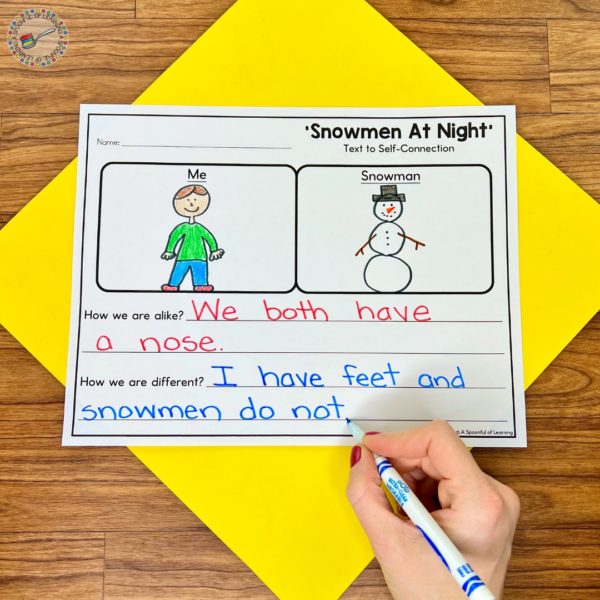 'Snowmen At Night'
Text to Self-Connection
Name:
Me
Snowman
How we are alike? We both have
a nose.
How we are different? I have feet and
snowmen do not
© A Spoonful of Learning